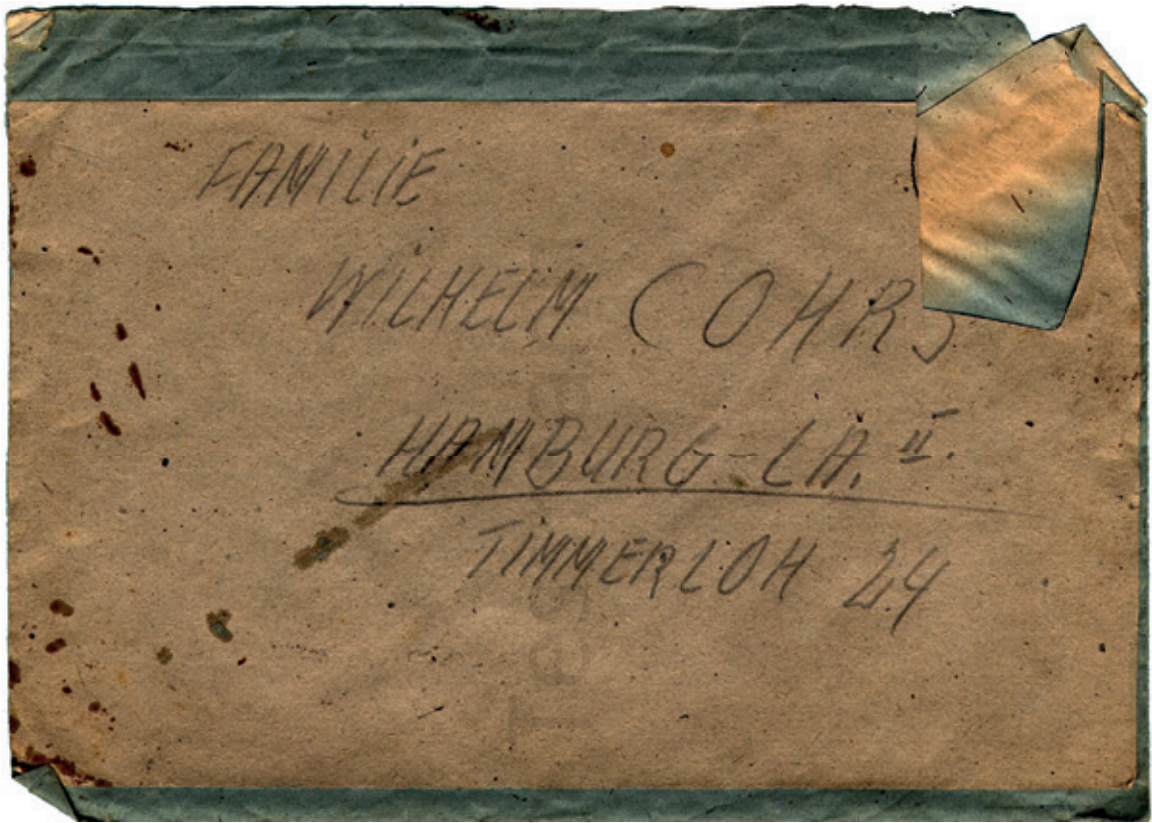 FAMILIE
WILHELM COHRS
HAMBURG-LA. II.
TIMMERLOH 24